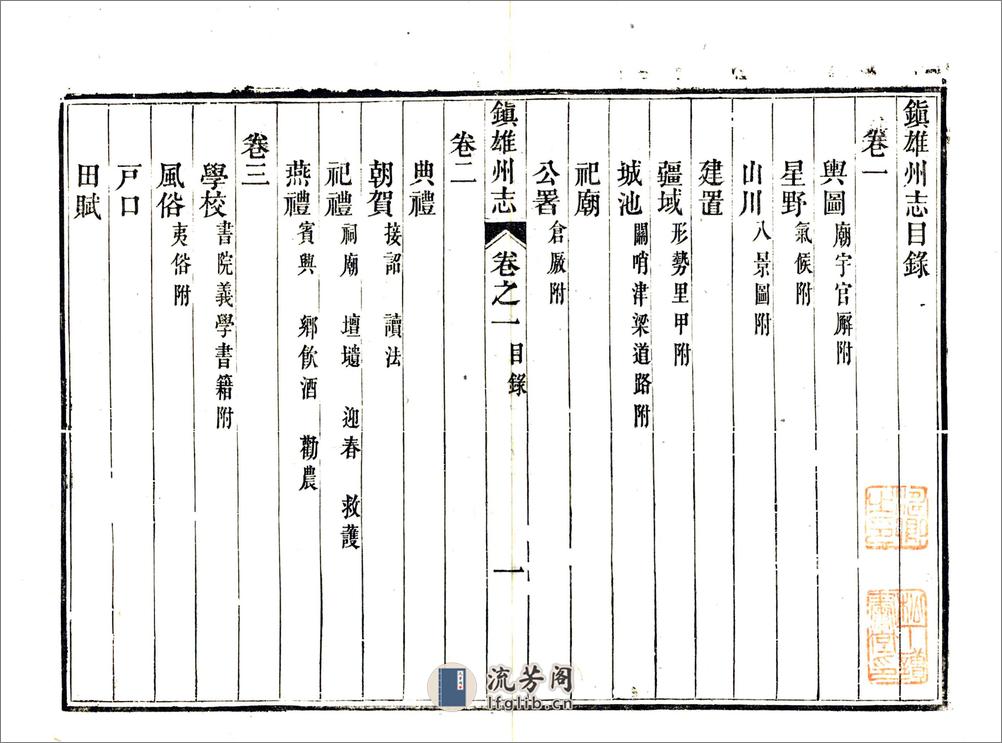 鎮雄州志目錄
卷一
輿圖 廟宇官廨附
星野 氣候附
山川 八景圖附
建置
疆域 形勢里甲附
城池 關哨津梁道路附
祀廟
公署 倉廒附
鎮雄州志 卷之一 目錄 一
卷二
典禮
朝賀 接詔 讀法
祀禮 祠廟 壇壝 迎春 救護
燕禮 賓興 鄉飲酒 勸農
卷三
學校 書院義學書籍附
風俗 夷俗附
戸口
田賦
流芳阁
lfglib.cn